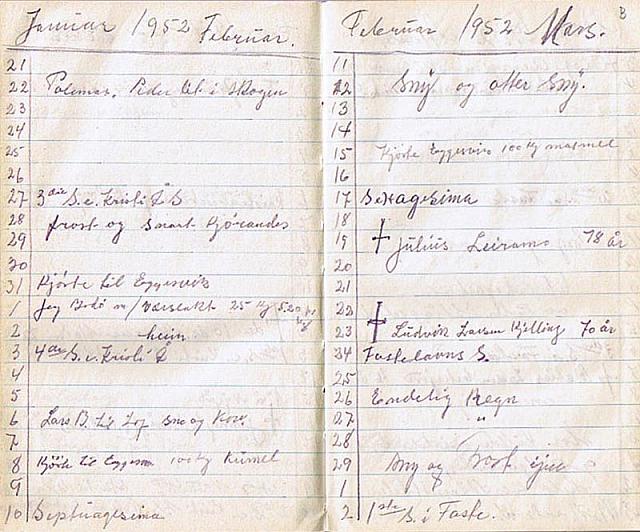 Januar 1952 Februar.
21
22 Peder til i skogen
23
24
25
26
27 3die S. e. Kristi Å S
28 frost og Snart Kjörandes
29
30
31 Kjörte til Eggesvik
1 Jeg Bodö m/ 25 Kg 5.20 pr
2 heim
3 4de S. e. Kristi Å
4
5
6 Lars B. til Lof sne og Kov.
7
8 Kjörte til Eggesvi 100 Kg Kúmel
9
10 Septuagesima
Februar 1952 Mars.
B
11
12 Sny og atter Sny.
13
14
15 Kjörte Eggesvik 100 Kg matmel
16
17 Sexagesima
18
19 † Júliús Leiramo 78 år
20
21
22
23 † Ludvik Larsen Kjelling 70 år
24 Fastelavns S.
25
26 Endelig Regn
27 "
28
29 Sny og
1
2 1ste S. i Faste.